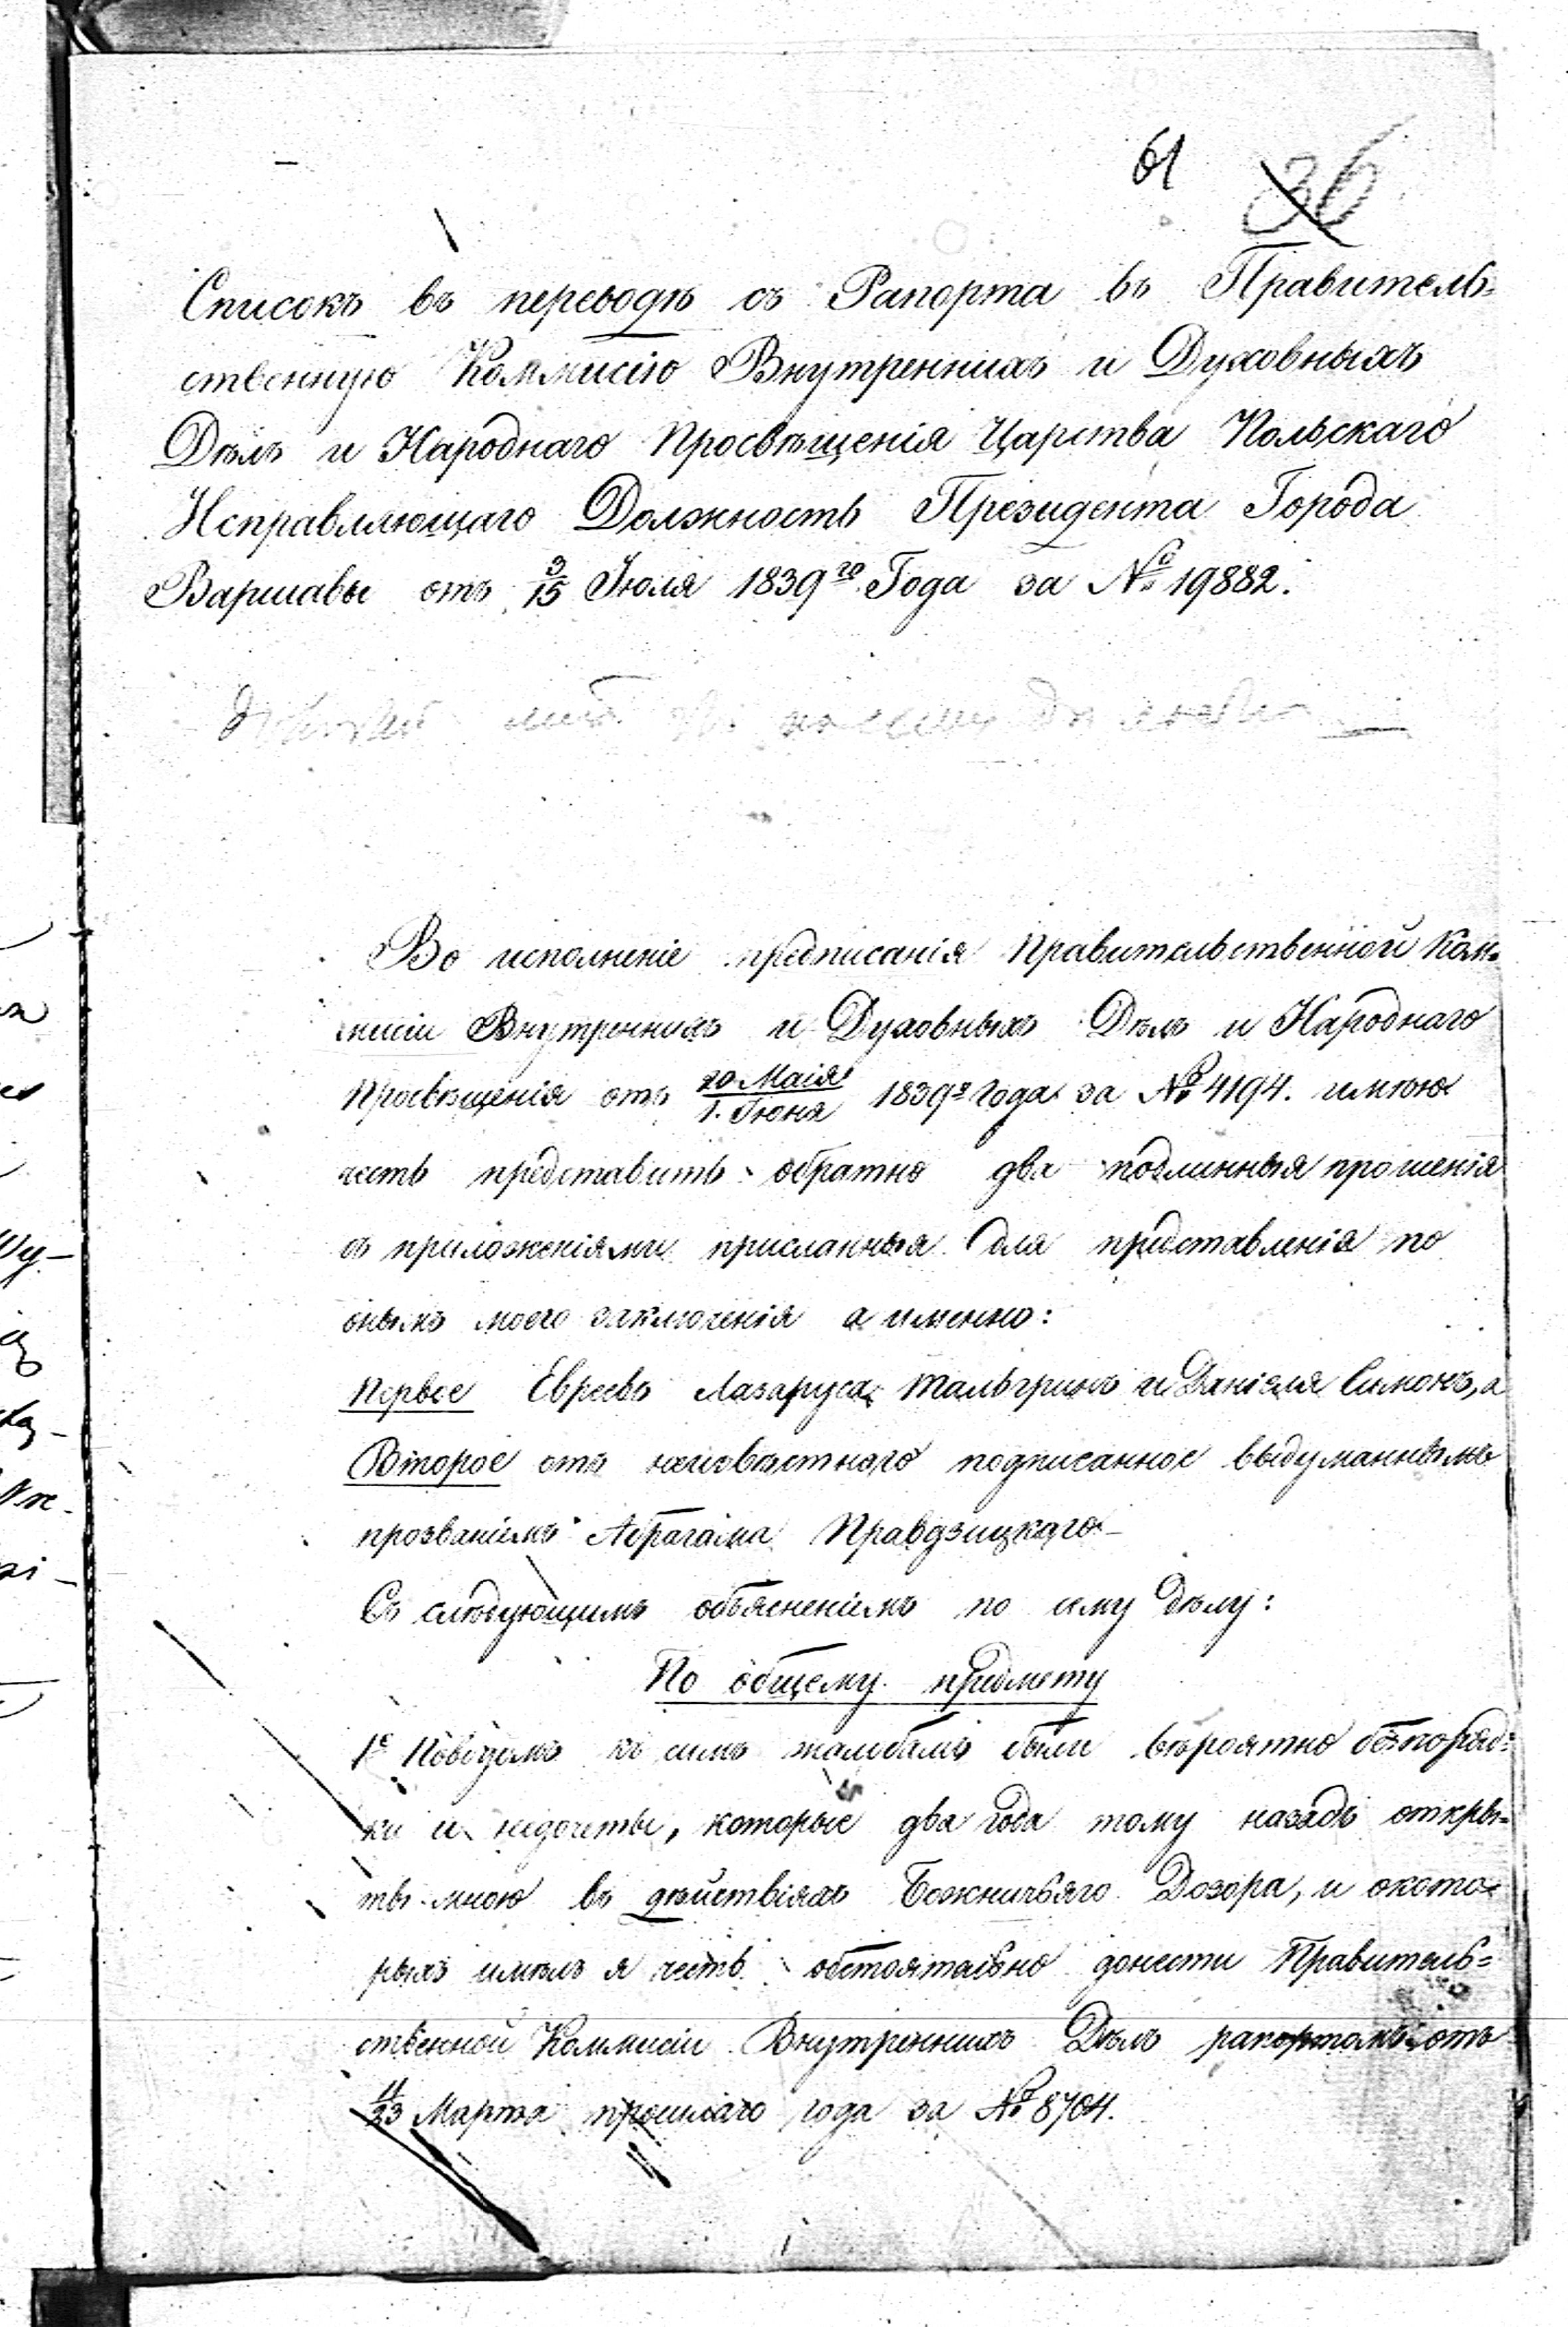 61 36
Списокъ въ переводѣ съ Рапорта въ Правитель-
ственную Коммисію Внутреннихъ и Духовныхъ
Дѣлъ и Народнаго Просвѣщенія Царства Польскаго
Исправляющаго Должность Президента Города
Варшавы отъ 3/15 Іюля 1839го Года за № 19882.
Во исполненіе предписанія Правительственной Ком-
мисіи Внутреннихъ и Духовныхъ Дѣлъ и Народнаго
Просвѣщенія отъ 20 Маія/1. Іюня 1839г Года за № 4194. имѣю
честь представить обратно два подлинныя прошенія
съ приложеніями присланныя для представленія по
онымъ моего заключенія а именно:
Первое Евреевъ Лазаруса Тальгринъ и Даніеля Симонъ, а
Второе отъ неизвѣстнаго подписанное выдуманнымъ
прозваніемъ Абрагама Правдзицкаго
Съ слѣдующимъ объясненіемъ по сему дѣлу:
По общему предмету
1е Поводомъ къ симъ жалобамъ были вѣроятно безпоряд-
ки и недочеты, которые два года тому назадъ откры-
ты мною въ дѣйствіяхъ Божничьяго Дозора, и о кото-
рыхъ имѣлъ я честь обстоятельно донести Правитель-
ственной Коммисіи Внутреннихъ Дѣлъ рапортомъ отъ
11/23 Марта прошлаго года за № 8704.